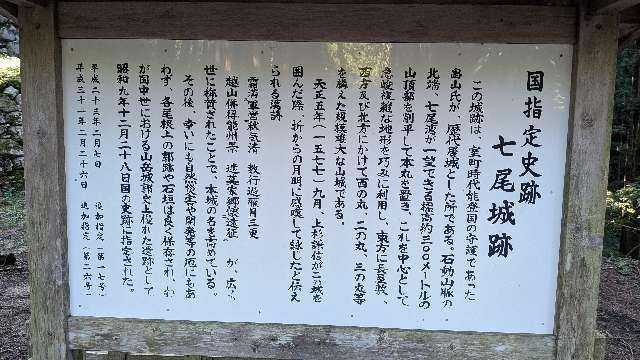 国指定史跡
七尾城跡
この城跡は、室町時代能登国の守護であった
畠山氏が、歴代居城とした所である。石動山脈の
北端、七尾湾が一望できる標高約三00メートルの
山頂部を削平して本丸を置き、これを中心として
急峻複雑な地形を巧みに利用し、東方に長屋敷、
西方及び北方にかけて西の丸、二の丸、三の丸等
を構えた規模雄大な山城である。
天正五年(一五七七)九月、上杉謙信がこの城を
囲んだ際、折からの月明に感慨して詠じたと伝え
られる漢詩
霜満軍営秋気清 数行過雁月三更
越山併得能州景 遮莫家郷憶遠征 が広く
世に称賛されたことで、本城の名を高めている。
その後、幸いにも自然災害や開発等の厄にもあ
わず、各尾根上の郭跡や石垣は良く保存され、わ
が国中世における山岳城郭を上位の遺跡として
昭和九年十二月二十八日国の史跡に指定された。
平成二十三年二月七日 追加指定(第一七号)
平成三十一年二月二十六日 追加指定(第二六号)